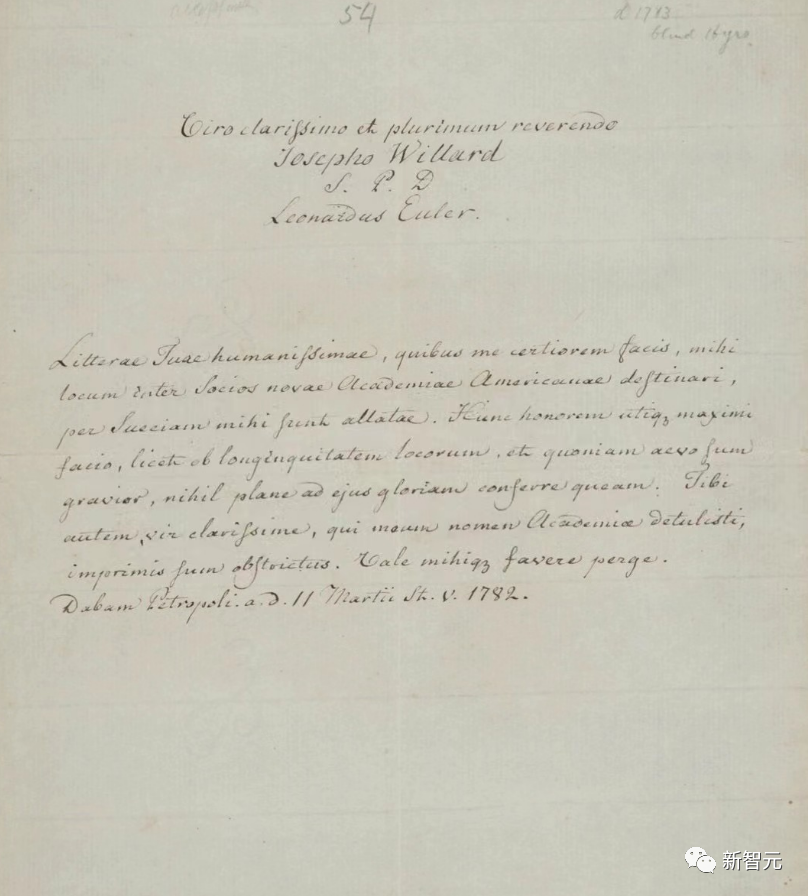 54
d 1783
blind 16 yrs.
Viro clariſsimo et plurimum reverendo
Josepho Willard
S. P. D
Leonardus Euler.
Litterae Tuae humaniſsimae, quibus me certiorem facis, mihi
locum inter Socios novae Academiae Americanae deſtinari,
per Sueciam mihi ſunt allatae. Hunc honorem utiqꝫ maximi
facio, licet ob longinquitatem locorum, et quoniam aevo ſum
gravior, nihil plane ad ejus gloriam conferre queam. Tibi
autem, vir clariſsime, qui meum nomen Academiæ detulisti,
imprimis ſum obſtrictus. Vale mihiqꝫ favere perge.
Dabam Petropoli. a. d. 11 Martii St. v. 1782.
新智元